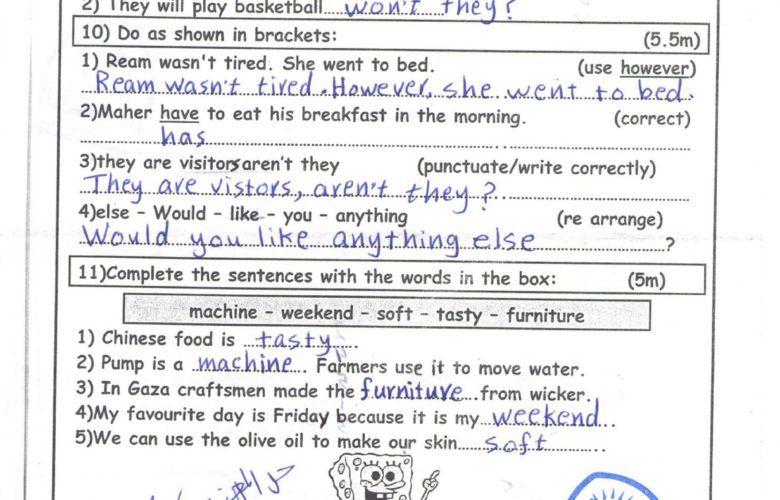 2) They will play basketball....won't they?
10) Do as shown in brackets: (5.5m)
1) Ream wasn't tired. She went to bed. (use however)
Ream wasn't tired. However, she went to bed.
2)Maher have to eat his breakfast in the morning. (correct)
has
3)they are visitors aren't they (punctuate/write correctly)
They are vistors, aren't they?
4)else – Would – like – you – anything (re arrange)
Would you like anything else ?
11)Complete the sentences with the words in the box: (5m)
machine – weekend – soft – tasty – furniture
1) Chinese food is ...tasty....
2) Pump is a machine... Farmers use it to move water.
3) In Gaza craftsmen made the furniture...from wicker.
4)My favourite day is Friday because it is my..weekend...
5)We can use the olive oil to make our skin.....soft..........